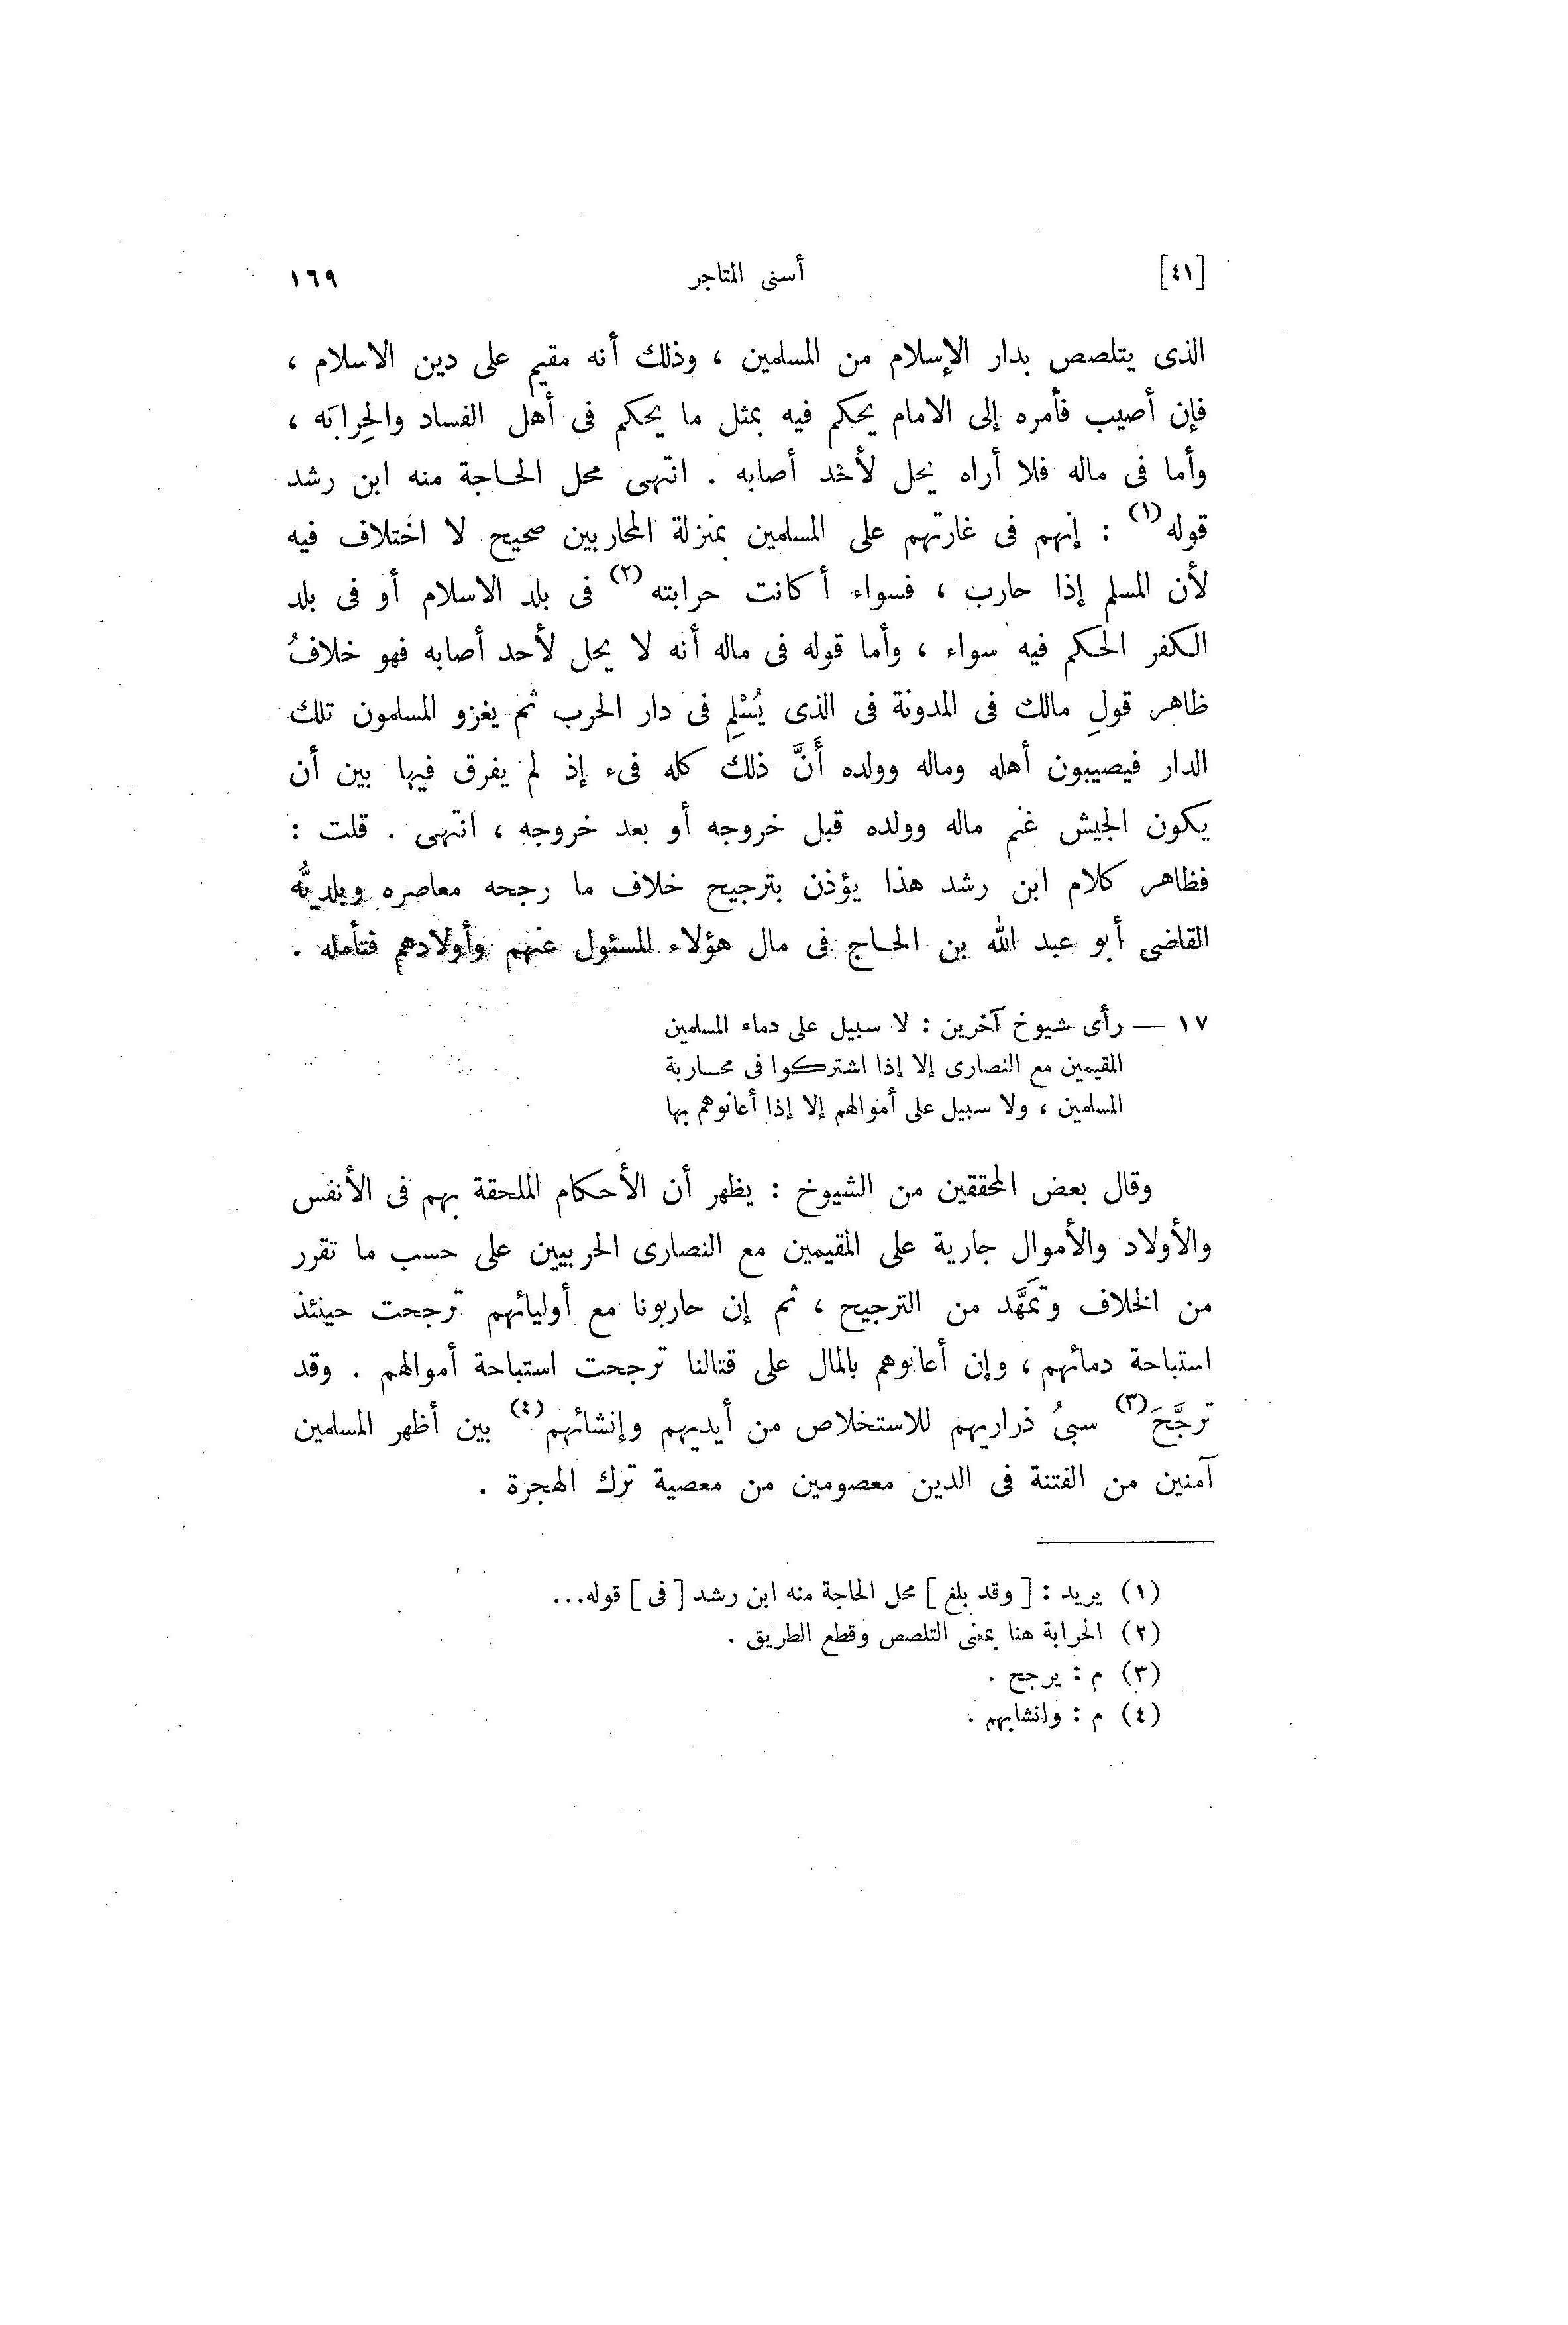 [٤١] أسنى المتاجر ١٦٩
الذى يتلصص بدار الإسلام من المسلمين ، وذلك أنه مقيم على دين الاسلام ،
فإن أصيب فأمره إلى الامام يحكم فيه بمثل ما يحكم فى أهل الفساد والحِرابَه ،
وأما فى ماله فلا أراه يحل لأحد أصابه . انتهى محل الحاجة منه ابن رشد
قوله(١) : إنهم فى غارتهم على المسلمين بمنزلة المحاربين صحيح لا اختلاف فيه
لأن المسلم إذا حارب ، فسواء أكانت حرابته(٢) فى بلد الاسلام أو فى بلد
الكفر الحكم فيه سواء ، وأما قوله فى ماله أنه لا يحل لأحد أصابه فهو خلافُ
ظاهر قولِ مالك فى المدونة فى الذى يُسْلِم فى دار الحرب ثم يغزو المسلمون تلك
الدار فيصيبون أهله وماله وولده أَنَّ ذلك كله فىء إذ لم يفرق فيها بين أن
يكون الجيش غنم ماله وولده قبل خروجه أو بعد خروجه ، انتهى . قلت :
فظاهر كلام ابن رشد هذا يؤذن بترجيح خلاف ما رجحه معاصره وبلديُّه
القاضى أبو عبد الله بن الحاج فى مال هؤلاء المسئول عنهم وأولادهم فتأمله .
١٧ — رأى شيوخ آخرين : لا سبيل على دماء المسلمين
المقيمين مع النصارى إلا إذا اشتركوا فى محاربة
المسلمين ، ولا سبيل على أموالهم إلا إذا أعانوهم بها
وقال بعض المحققين من الشيوخ : يظهر أن الأحكام الملحقة بهم فى الأنفس
والأولاد والأموال جارية على المقيمين مع النصارى الحربيين على حسب ما تقرر
من الخلاف وتَمَهَّد من الترجيح ، ثم إن حاربونا مع أوليائهم ترجحت حينئذ
استباحة دمائهم ، وإن أعانوهم بالمال على قتالنا ترجحت استباحة أموالهم . وقد
ترجَّحَ(٣) سبىُ ذراريهم للاستخلاص من أيديهم وإنشائهم(٤) بين أظهر المسلمين
آمنين من الفتنة فى الدين معصومين من معصية ترك الهجرة .
(١) يريد : [ وقد بلغ ] محل الحاجة منه ابن رشد [ فى ] قوله...
(٢) الحرابة هنا بمعنى التلصص وقطع الطريق .
(٣) م : يرجح .
(٤) م : وانشابهم .